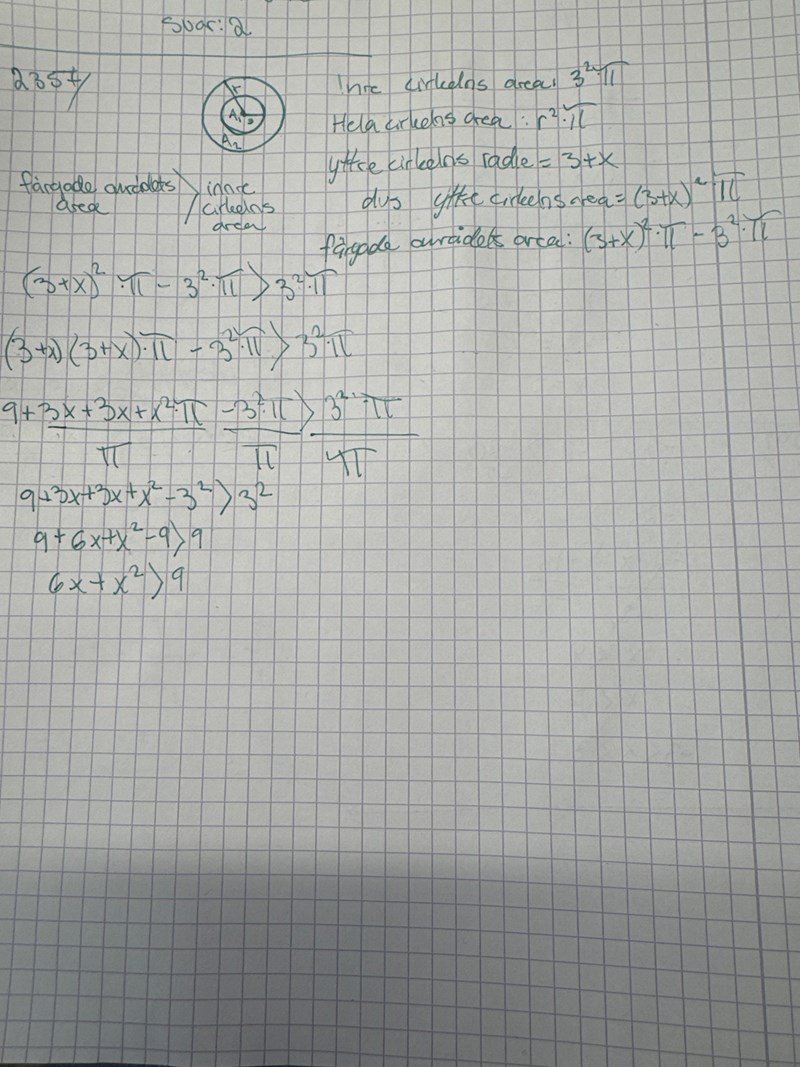 Svar: 2
2357/
r
A₁ 3
A₂
Inre cirkelns area: 3²·π
Hela cirkelns area: r²·π
yttre cirkelns radie = 3+x
dvs yttre cirkelns area = (3+x)²·π
färgade områdets area: (3+x)²·π - 3²·π
färgade områdets area > inre cirkelns area
(3+x)²·π - 3²·π > 3²·π
(3+x)(3+x)·π - 3²·π > 3²·π
9+3x+3x+x²·π - 3²·π > 3²·π
π π π
9+3x+3x+x² - 3² > 3²
9+6x+x²-9 > 9
6x+x² > 9